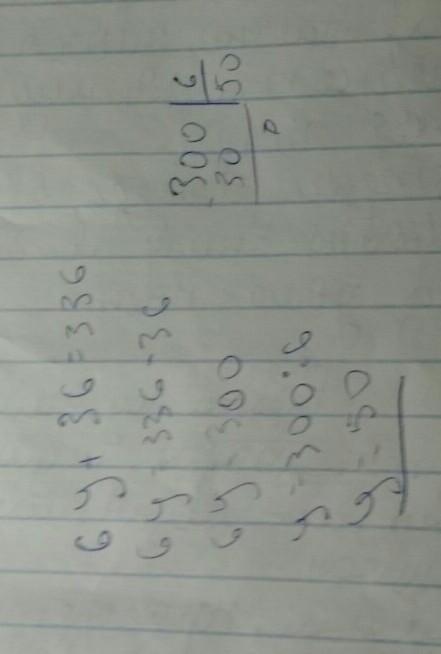 6y + 36 = 336
6y = 336 - 36
6y = 300
y = 300 : 6
y = 50
300 | 6
30 | 50
0